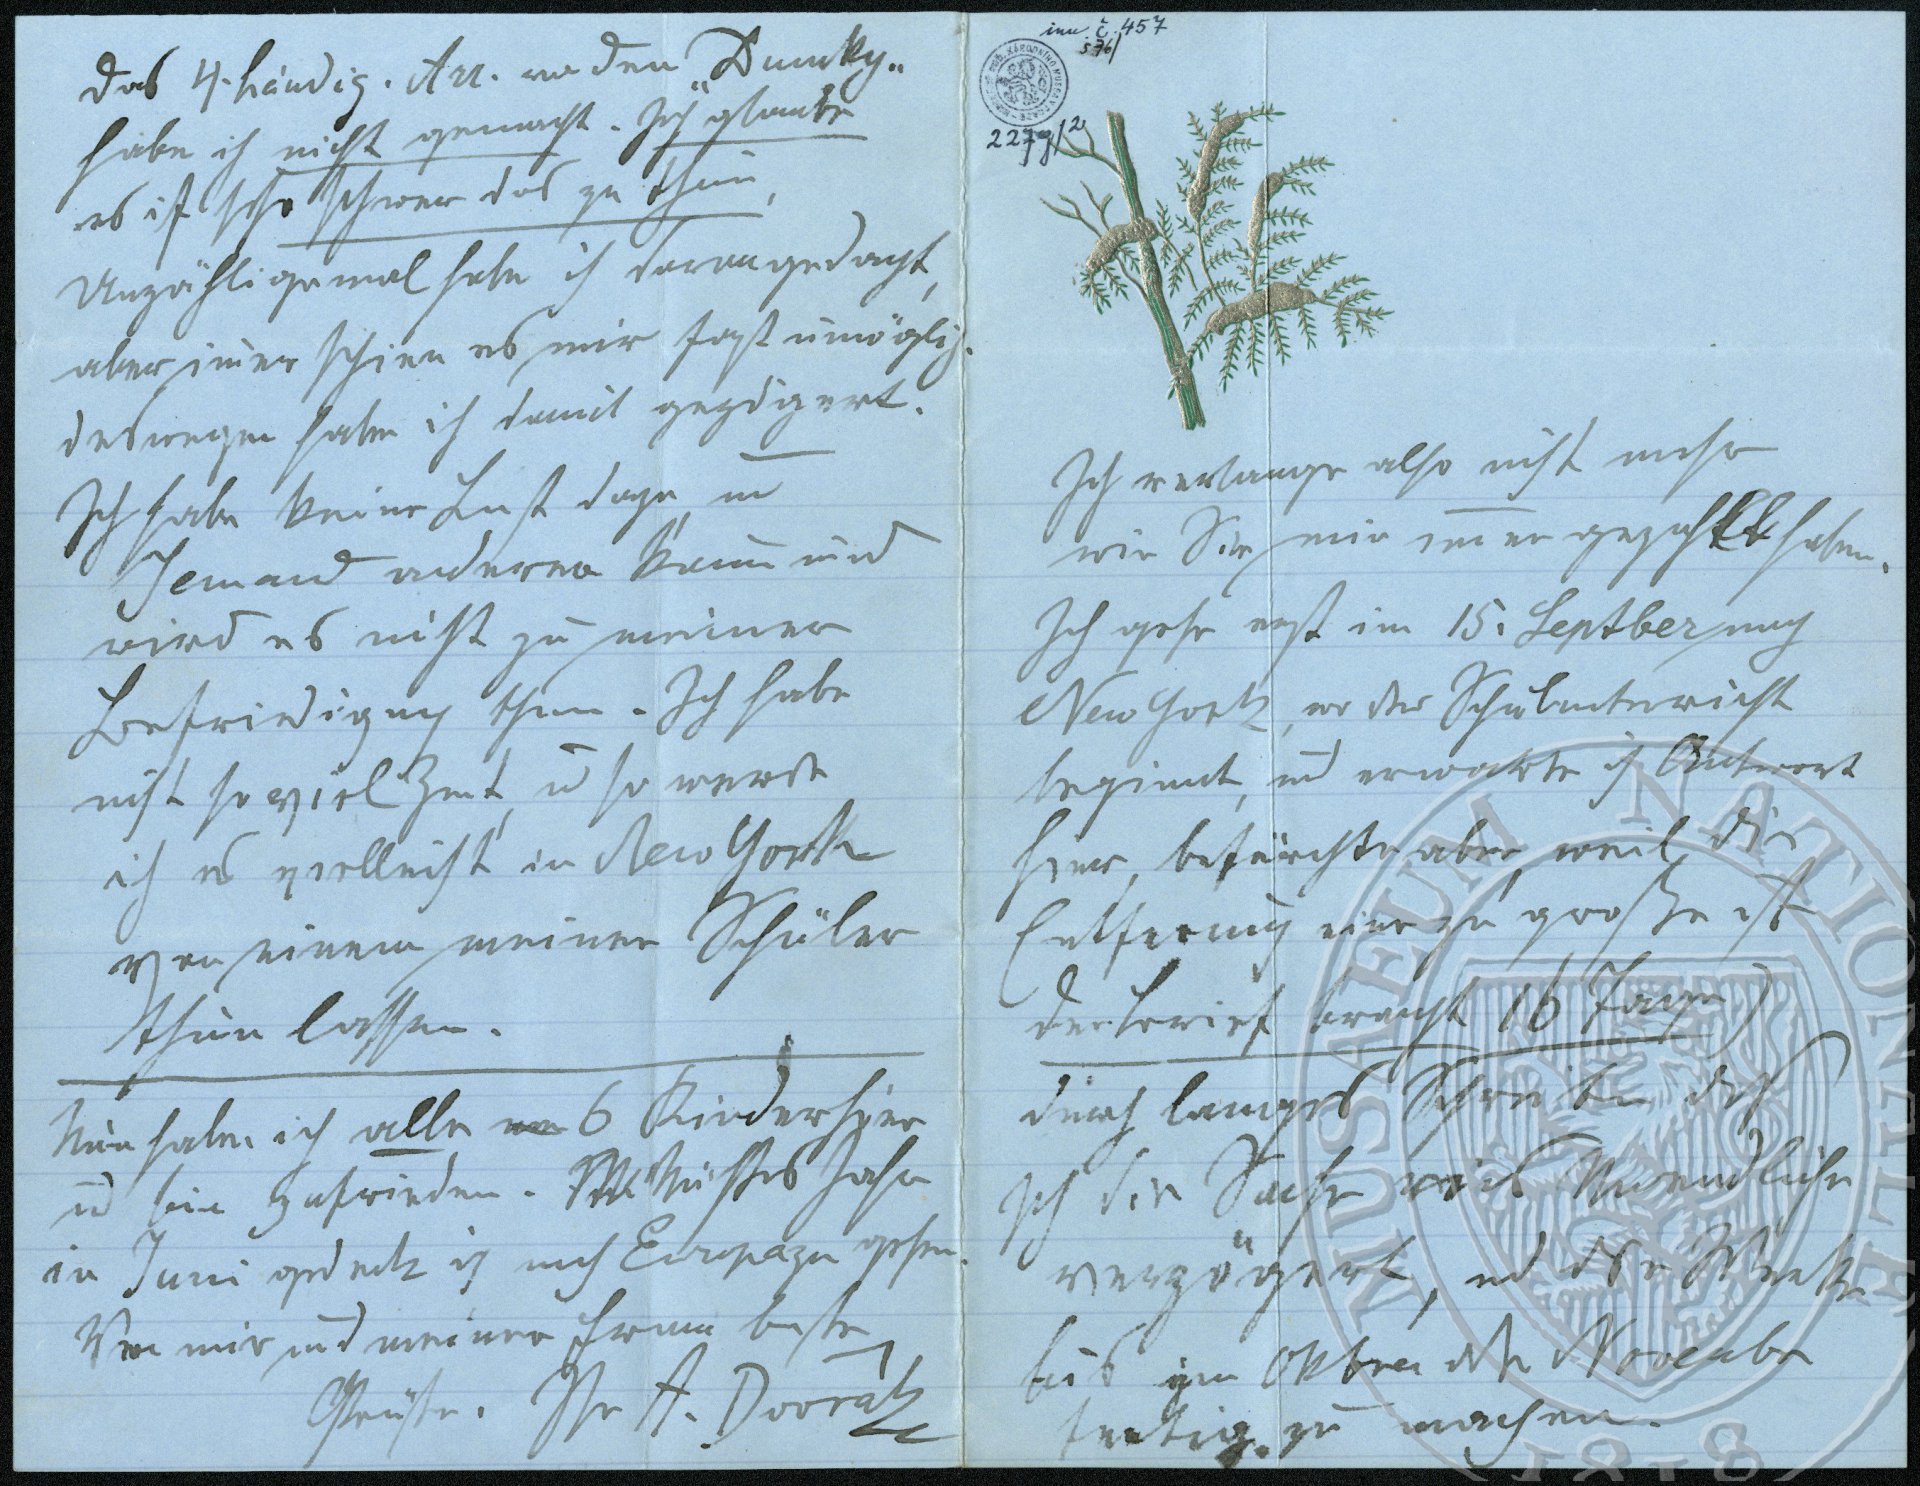 das 4-händig. Arr. von den „Dumky"
habe ich nicht gemacht. Ich glaube
es ist sehr schwer das zu thun,
Unzähligemal habe ich daran gedacht,
aber im̄er schien es mir fast unmöglich.
deswegen habe ich damit gezögert.
Ich habe keine Lust dazu, u
Jemand anderer kann und
wird es nicht zu meiner
Befriedigung thun. Ich habe
nicht so viel Zeit, ū so werde
ich es vielleicht in New York
von einem meiner Schüler
thun lassen.
Nun habe ich alle 6 Kinder hier
ū bin zufrieden. Nächstes Jahr
in Juni gedenke ich nach Europa zu gehen.
Von mir und meiner Frau beste
Grüße. Ihr A. Dvořák
inv. č. 457
576/
227g/2
Ich verlange also nicht mehr
wie Sie mir im̄er gezahlt haben.
Ich gehe erst im 15. Septber nach
New York, wo der Schulunterricht
beginnt, und erwarte ich Antwort
hier, befürchte aber, weil die
Entfernung eine zu große ist
der Brief braucht 16 Tage)
durch langes Schreiben doch
sich die Sache ins Unendliche
verzögert, und die Werke
bis im Oktber oder November
fertig zu machen.
MUSAEUM NATIONALE
1818